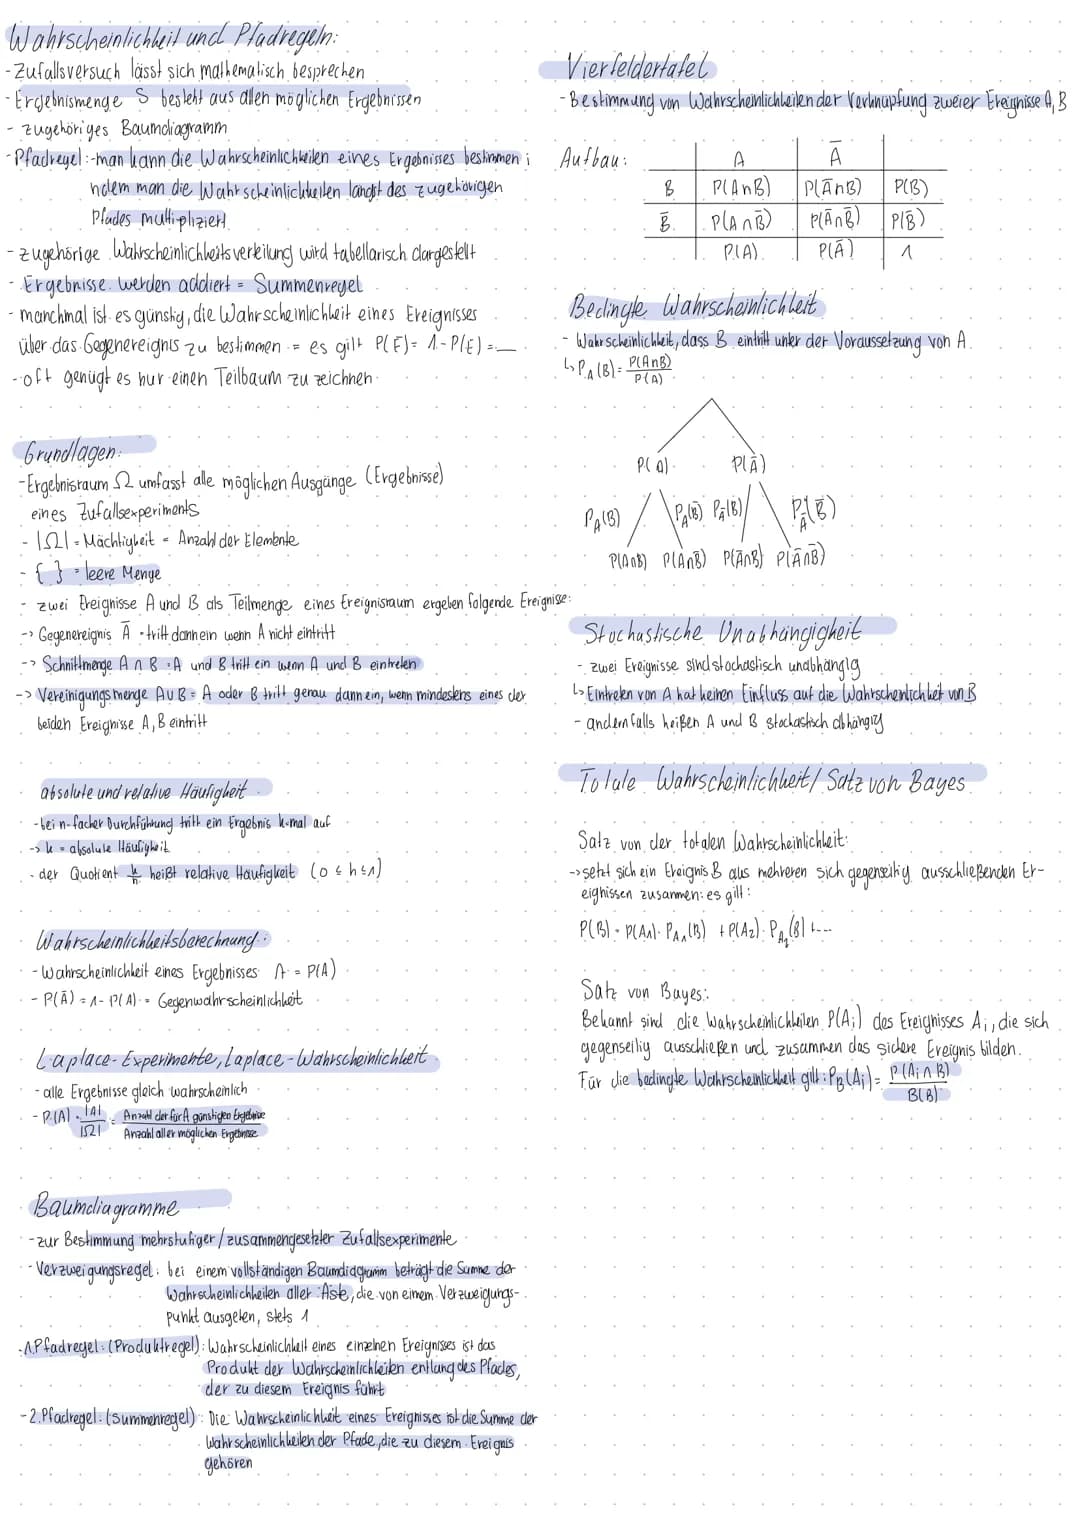 Wahrscheinlichkeit und Pfadregeln:
- Zufallsversuch lässt sich mathematisch besprechen
- Ergebnismenge S besteht aus allen möglichen Ergebnissen
- zugehöriges Baumdiagramm
- Pfadregel: - man kann die Wahrscheinlichkeiten eines Ergebnisses bestimmen i
ndem man die Wahrscheinlichkeiten längst des zugehörigen
Pfades multipliziert
- zugehörige Wahrscheinlichkeitsverteilung wird tabellarisch dargestellt
- Ergebnisse werden addiert = Summenregel
- manchmal ist es günstig, die Wahrscheinlichkeit eines Ereignisses
über das Gegenereignis zu bestimmen = es gilt P(E) = 1 - P(E) = __
- oft genügt es nur einen Teilbaum zu zeichnen
Grundlagen:
- Ergebnisraum Ω umfasst alle möglichen Ausgänge (Ergebnisse)
eines Zufallsexperiments
- |Ω| = Mächtigkeit = Anzahl der Elemente
- { } = leere Menge
- zwei Ereignisse A und B als Teilmenge eines Ereignisraum ergeben folgende Ereignisse:
-> Gegenereignis Ā = tritt dann ein wenn A nicht eintritt
-> Schnittmenge A ∩ B = A und B tritt ein wenn A und B eintreten
-> Vereinigungsmenge A ∪ B = A oder B tritt genau dann ein, wenn mindestens eines der
beiden Ereignisse A, B eintritt
absolute und relative Häufigkeit
- bei n-facher Durchführung tritt ein Ergebnis k-mal auf
-> k = absolute Häufigkeit
- der Quotient k/n heißt relative Häufigkeit (0 ≤ h ≤ 1)
Wahrscheinlichkeitsberechnung:
- Wahrscheinlichkeit eines Ergebnisses A = P(A)
- P(Ā) = 1 - P(A) = Gegenwahrscheinlichkeit
Laplace-Experimente, Laplace-Wahrscheinlichkeit
- alle Ergebnisse gleich wahrscheinlich
- P(A) = |A| / |Ω| = Anzahl der für A günstigen Ergebnisse / Anzahl aller möglichen Ergebnisse
Baumdiagramme
- zur Bestimmung mehrstufiger / zusammengesetzter Zufallsexperimente
- Verzweigungsregel: bei einem vollständigen Baumdiagramm beträgt die Summe der
Wahrscheinlichkeiten aller Äste, die von einem Verzweigungs-
punkt ausgehen, stets 1
- 1.Pfadregel: (Produktregel): Wahrscheinlichkeit eines einzelnen Ereignisses ist das
Produkt der Wahrscheinlichkeiten entlang des Pfades,
der zu diesem Ereignis führt
- 2.Pfadregel: (Summenregel): Die Wahrscheinlichkeit eines Ereignisses ist die Summe der
Wahrscheinlichkeiten der Pfade, die zu diesem Ereignis
gehören
Vierfeldertafel
- Bestimmung von Wahrscheinlichkeiten der Verknüpfung zweier Ereignisse A, B
Aufbau: A Ā
B P(A∩B) P(Ā∩B) P(B)
B̄ P(A∩B̄) P(Ā∩B̄) P(B̄)
P(A) P(Ā) 1
Bedingte Wahrscheinlichkeit
- Wahrscheinlichkeit, dass B eintritt unter der Voraussetzung von A
↳ P_A(B) = P(A∩B) / P(A)
P(A) P(Ā)
P_A(B) P_A(B̄) P_Ā(B) P_Ā(B̄)
P(A∩B) P(A∩B̄) P(Ā∩B) P(Ā∩B̄)
Stochastische Unabhängigkeit
- zwei Ereignisse sind stochastisch unabhängig
↳ Eintreten von A hat keinen Einfluss auf die Wahrscheinlichkeit von B
- andernfalls heißen A und B stochastisch abhängig
Totale Wahrscheinlichkeit / Satz von Bayes
Satz von der totalen Wahrscheinlichkeit:
-> setzt sich ein Ereignis B aus mehreren sich gegenseitig ausschließenden Er-
eignissen zusammen: es gilt:
P(B) = P(A₁) · P_A₁(B) + P(A₂) · P_A₂(B) + ---
Satz von Bayes:
Bekannt sind die Wahrscheinlichkeiten P(Aᵢ) des Ereignisses Aᵢ, die sich
gegenseitig ausschließen und zusammen das sichere Ereignis bilden.
Für die bedingte Wahrscheinlichkeit gilt: P_B(Aᵢ) = P(Aᵢ∩B) / B(B)